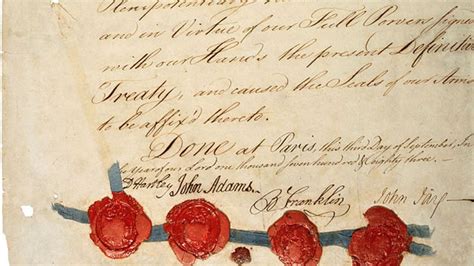 Plenipotentiary
and in Virtue of our Full Powers, signed
with our Hands the present Definitive
Treaty, and caused the Seals of our Arms
to be affix'd thereto.
Done at Paris, this third Day of September, In
Year of our Lord one thousand seven hundred & eighty three.
D Hartley John Adams. B Franklin John Jay